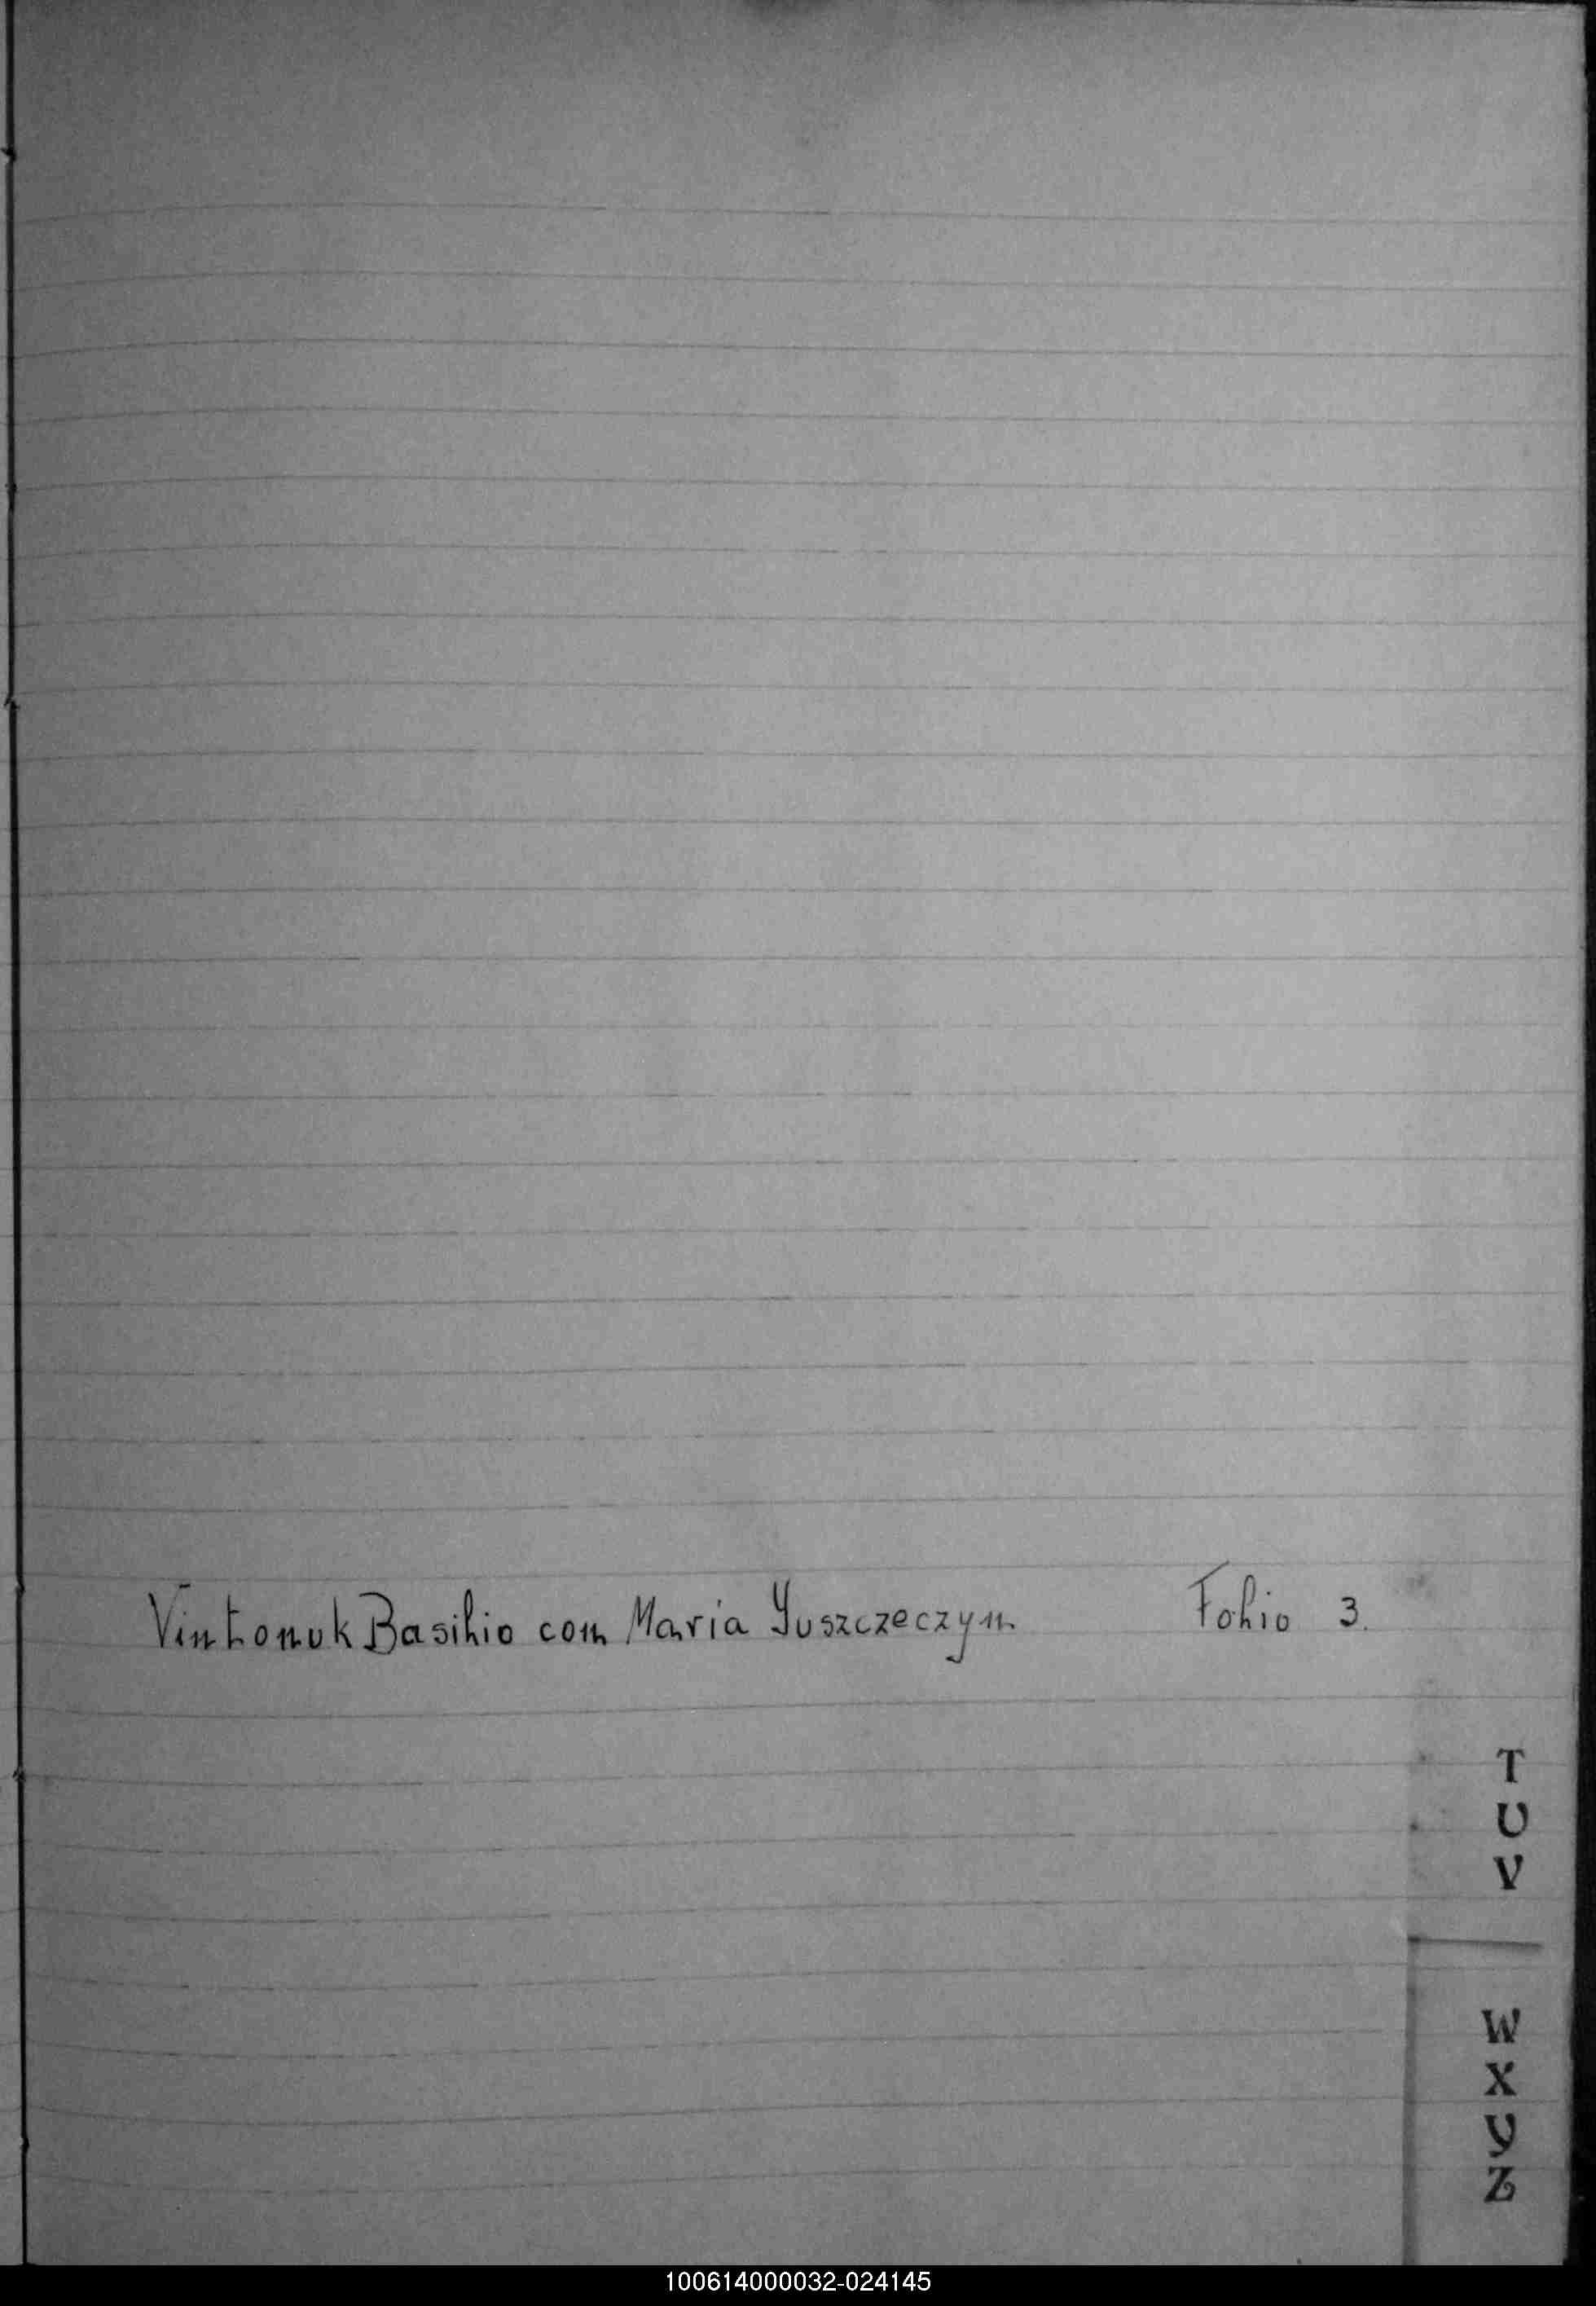 Vintonuk Basilio com Maria Yuszczeczyn Folio 3.
T
U
V
W
X
Y
Z
100614000032-024145